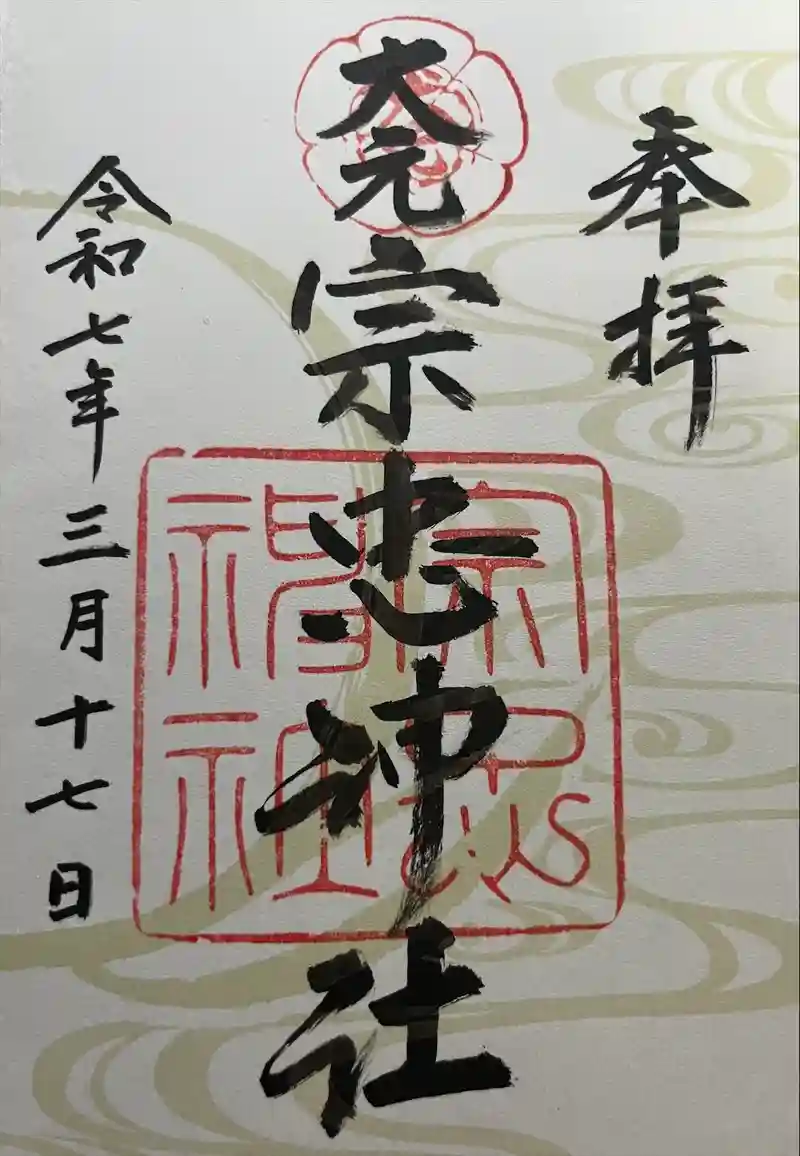 奉拝
大元
宗忠神社
宗忠神社
令和七年三月十七日